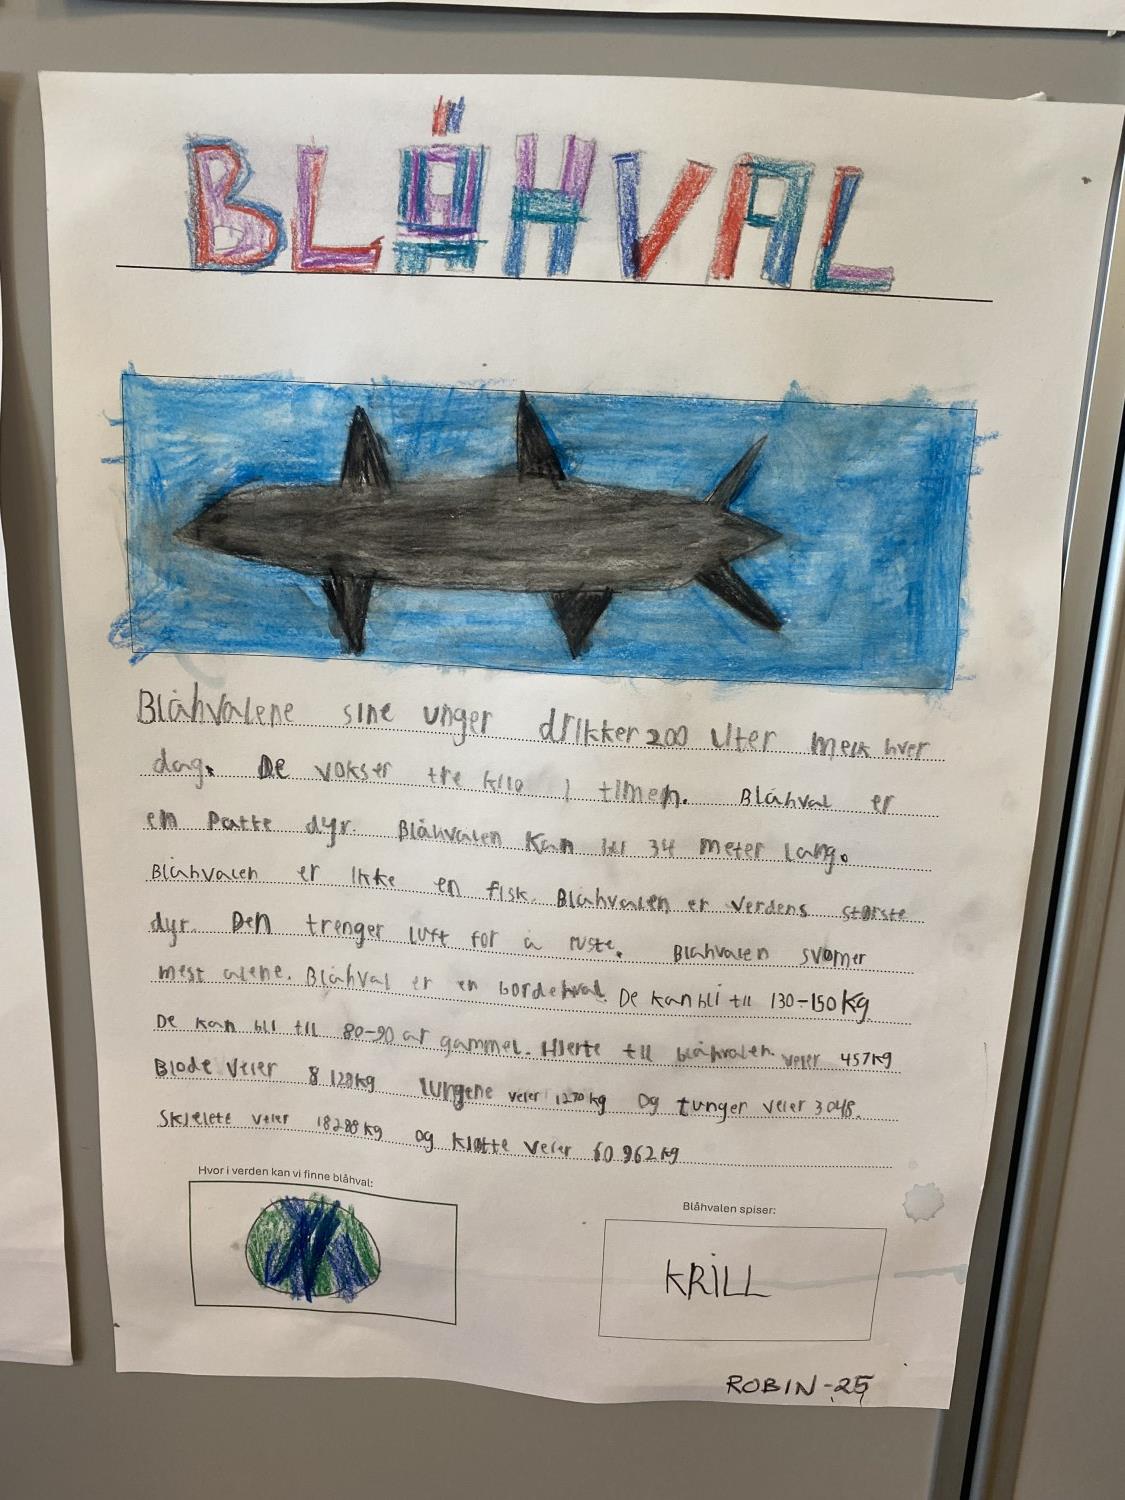 BLÅHVAL
Blåhvalene sine unger drikker 200 liter melk hver
dag. De vokser tre kilo i timen. Blåhval er
em Patte dyr. Blåhvalen kan bli 34 meter lang.
Blåhvalen er ikke en fisk. Blåhvalen er verdens største
dyr. Den trenger luft for å puste. Blåhvalen svømer
mest alene. Blåhval er en bordehval. De kan bli til 130-150 kg.
De kan bli till 80-90 år gammel. Hjerte till blåhvalen veier 457 kg
Blode veier 8 128 kg lungene veier 1270 kg og tunger veier 3 048.
Skjelete veier 18288 kg og kjøtte veier 60 962 kg
Hvor i verden kan vi finne blåhval:
Blåhvalen spiser:
KRILL
ROBIN-25